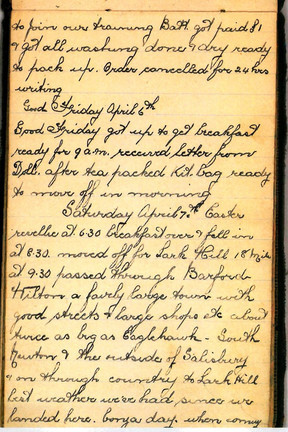 to join our training Batt. got paid £1
& got all washing done & dry ready
to pack up. Order cancelled for 24 hrs
writing
Good Friday April 6th
Good Friday got up to get breakfast
ready for 9 a.m. received letter from
Doll. after tea packed Kit bag ready
to move off in morning
Saturday April 7th Easter
reveille at 6.30 breakfast over & fall in
at 8.30. moved off for Lark Hill 18 mile
at 9.30 passed through Barford
Wilton a fairly large town with
good streets & large shops etc about
twice as big as Eaglehawk - South
Newton & the outside of Salisbury
& on through country to Lark Hill
best weather we've had since we
landed here. bonza day. when coming